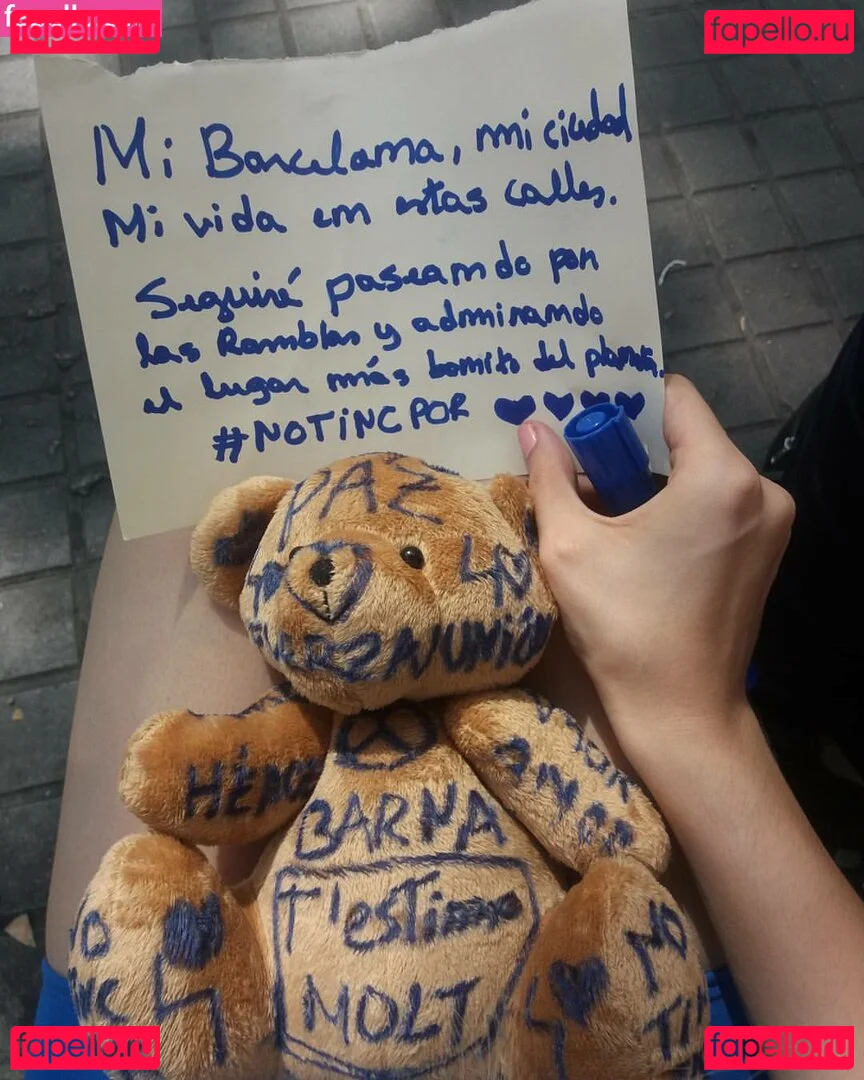 fapello.ru
fapello.ru
Mi Barcelona, mi ciudad
Mi vida en estas calles.
Seguiré paseando por
las Ramblas y admirando
el lugar más bonito del planeta.
#NOTINCPOR
PAZ
FUERZA UNIÓN
BARNA
T'estimo
MOLT
NO
NO
fapello.ru
fapello.ru